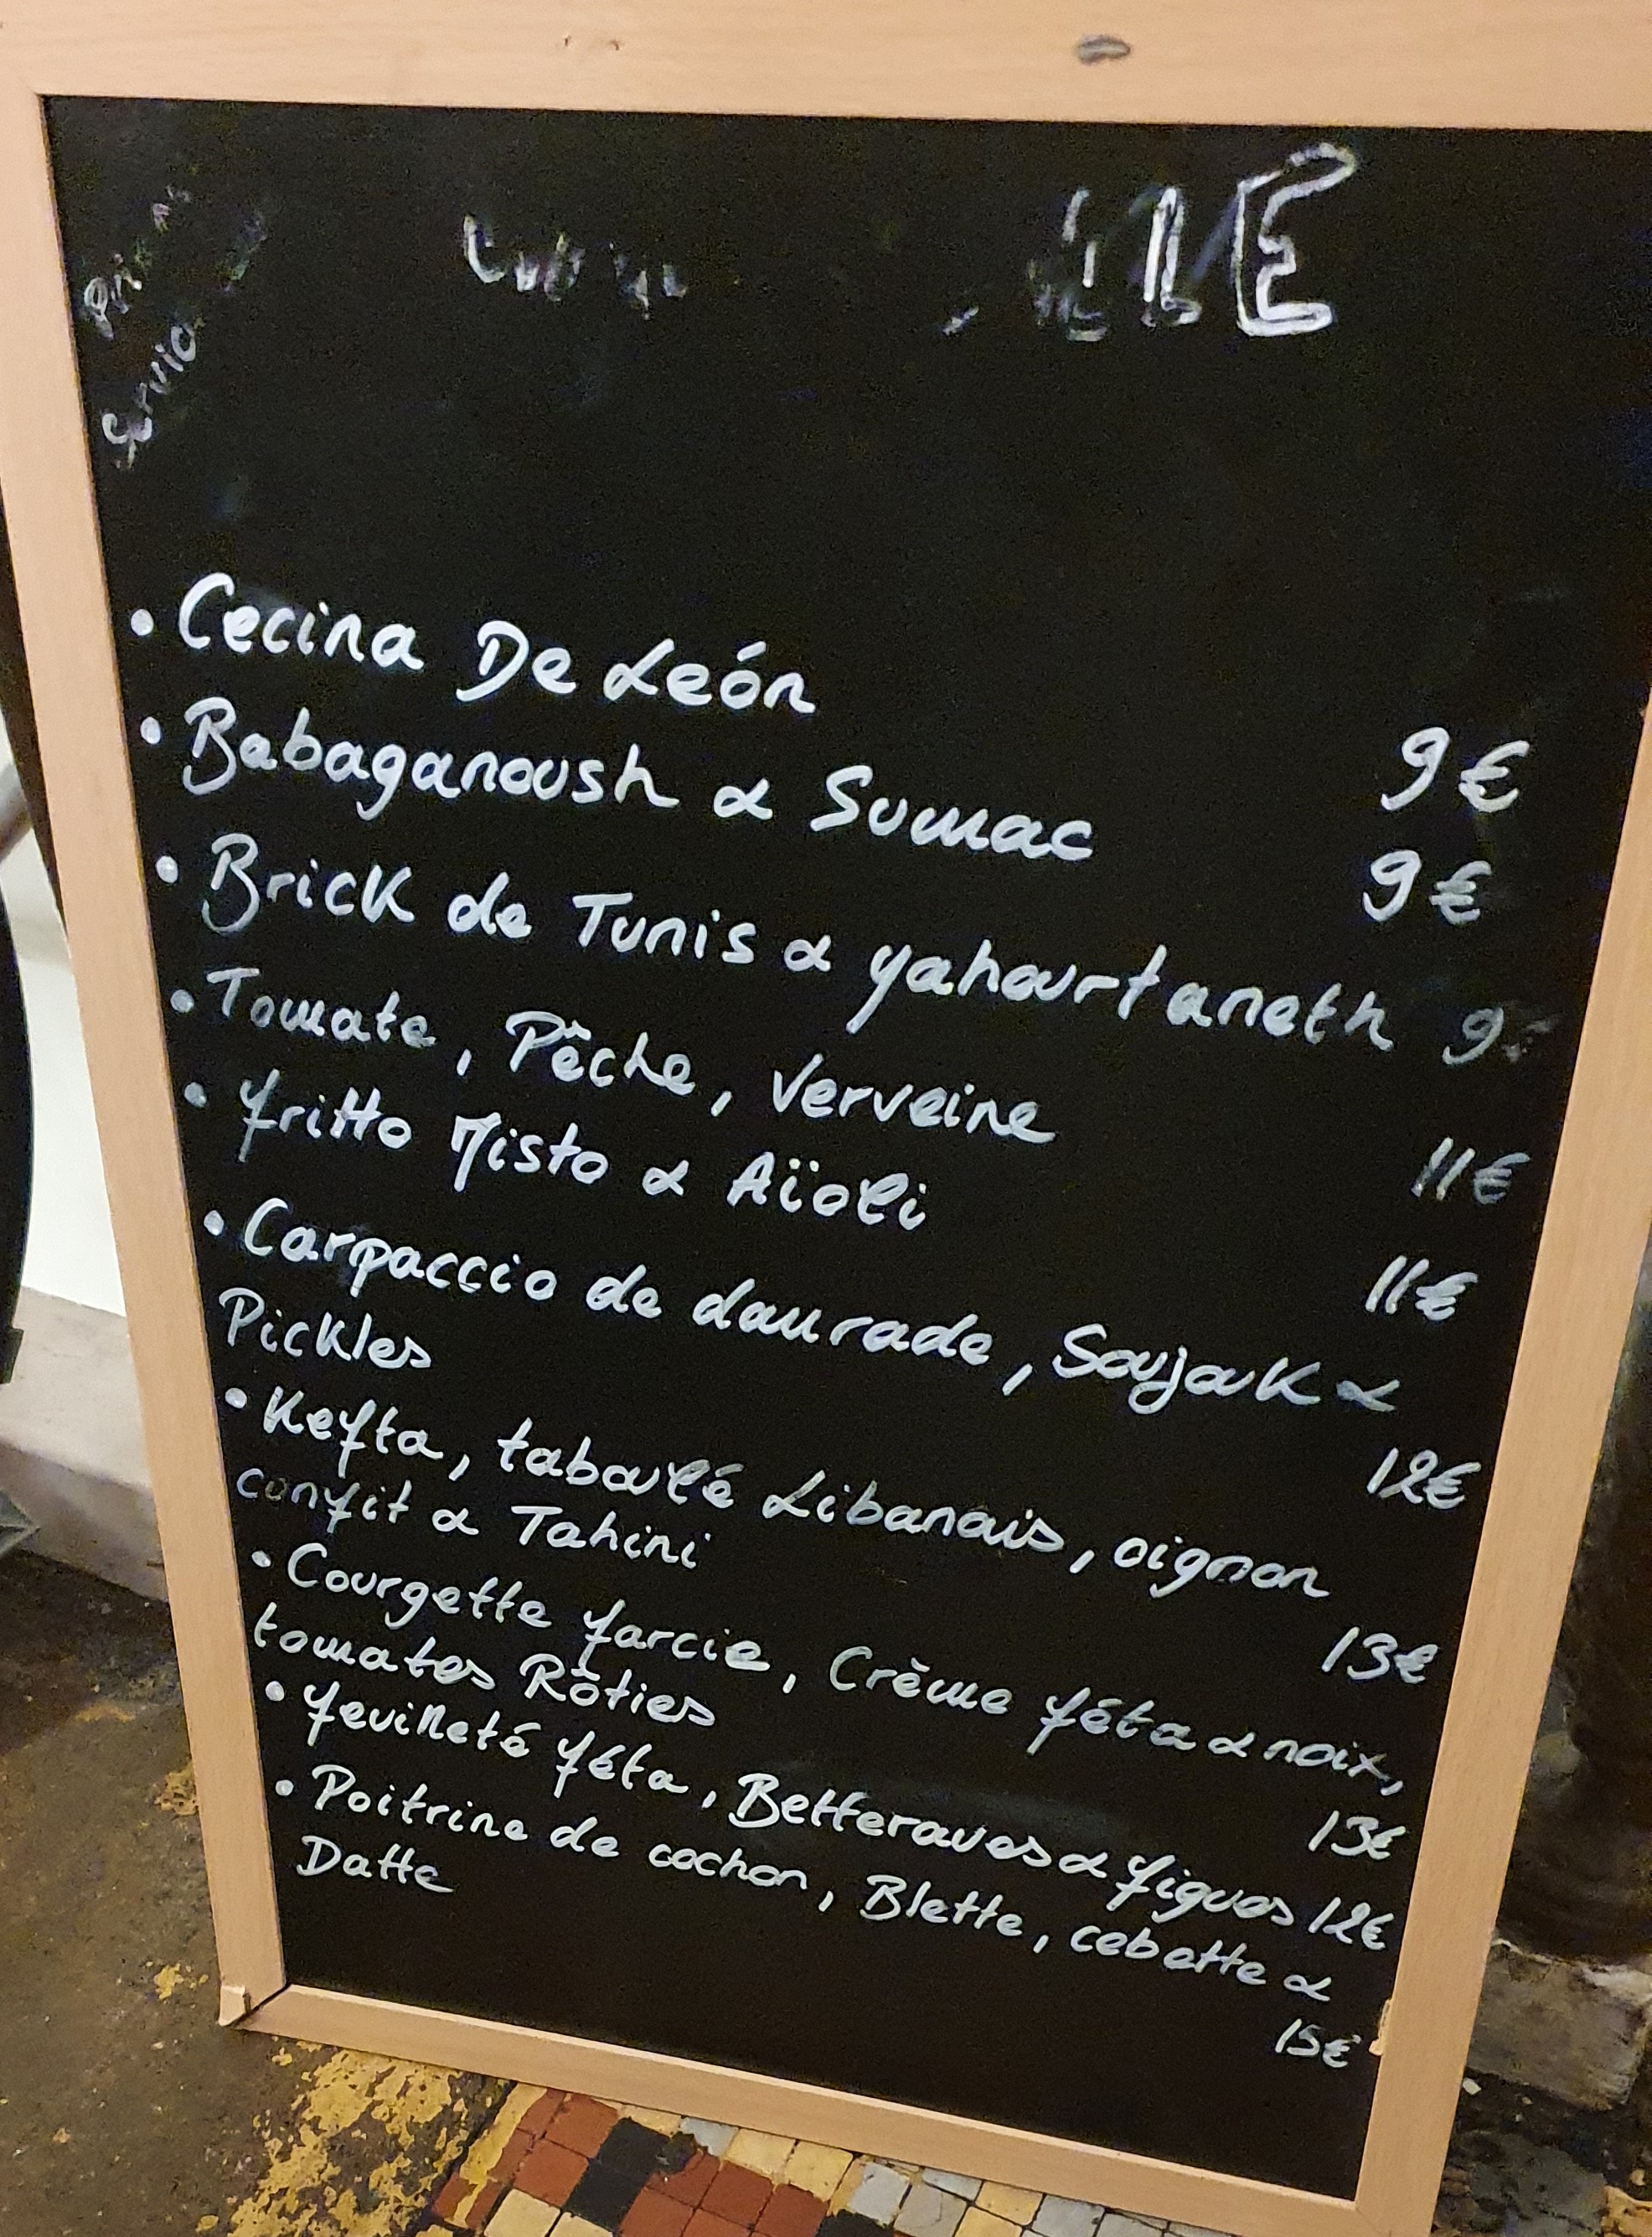 • Cecina De León
9€
• Babaganoush & Sumac
9€
• Brick de Tunis & yahourtaneth 9€
• Tomate, Pêche, Verveine
11€
• fritto Misto & Aïoli
11€
• Carpaccio de daurade, Soujouk &
Pickles
12€
• Kefta, taboulé Libanais, oignon
confit & Tahini
13€
• Courgette farcie, Crème féta & noix,
tomates Rôties
13€
• feuilleté féta, Betteraves & figues 12€
• Poitrine de cochon, Blette, cebette &
Datte
15€